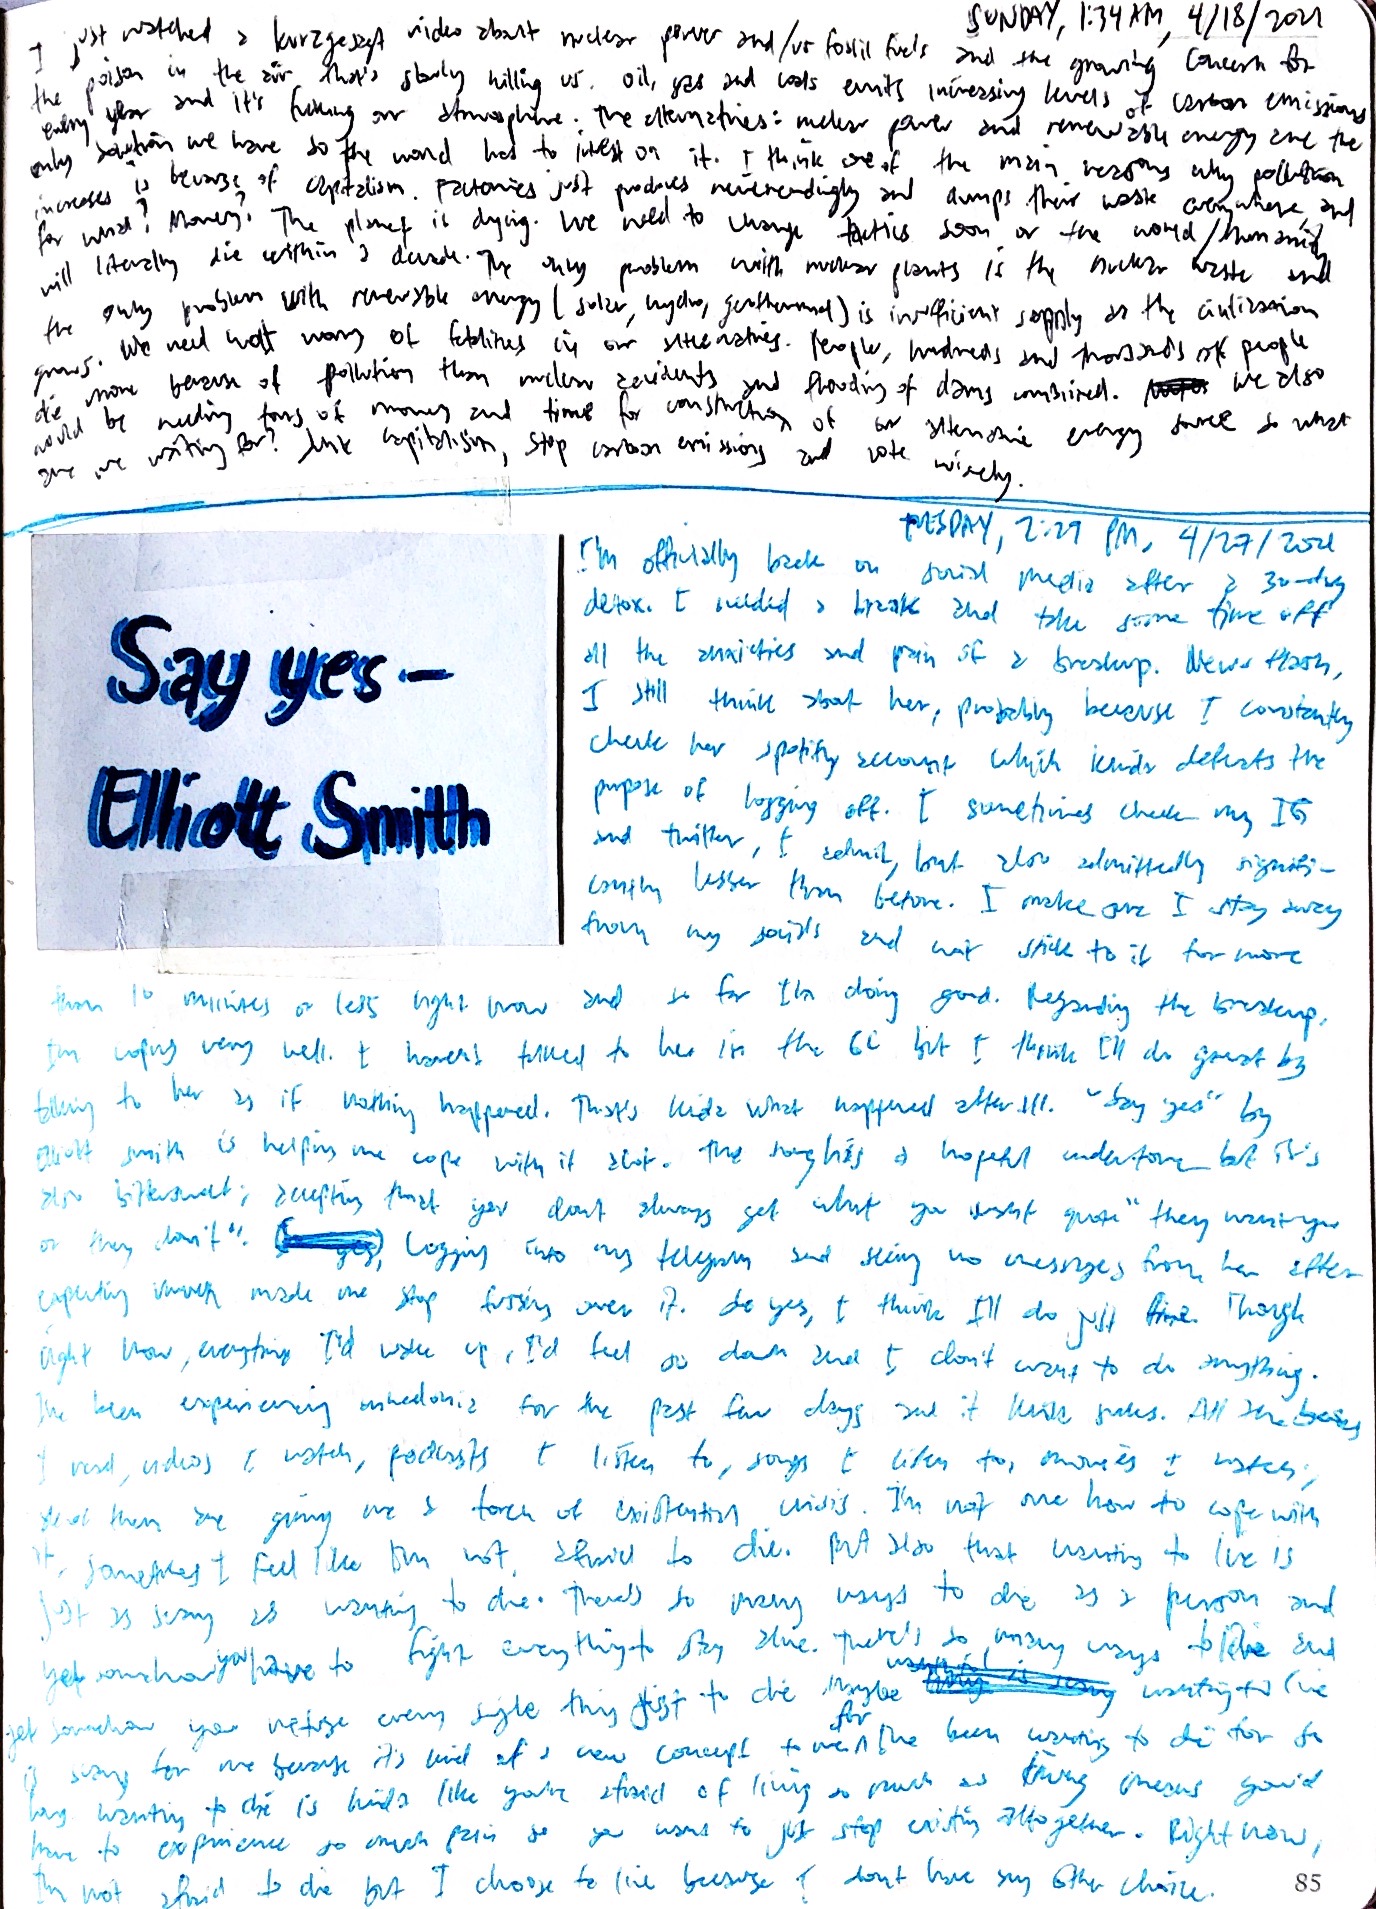 SUNDAY, 1:34 AM, 4/18/2021
I just watched a kurzgesagt video about nuclear power and/vs fossil fuels and the growing concern for
the poison in the air that's slowly killing us. Oil, gas and coals emits increasing levels of carbon emissions
every year and it's fucking our atmosphere. The alternatives: nuclear power and renewable energy are the
only solution we have so the world has to invest on it. I think one of the main reasons why pollution
increases is because of capitalism. Factories just produces neverendingly and dumps their waste everywhere, and
for what? Money? The planet is dying. We need to change tactics soon or the world/humanity
will literally die within a decade. The only problem with nuclear plants is the nuclear waste and
the only problem with renewable energy (solar, hydro, geothermal) is insufficient supply as the civilization
grows. We need not worry of fatalities in our alternatives. People, hundreds and thousands of people
die more because of pollution than nuclear accidents and flooding of dams combined. We also
would be needing tons of money and time for construction of our alternative energy source so what
are we waiting for? Junk capitalism, stop carbon emissions and vote wisely.
TUESDAY, 2:29 PM, 4/27/2021
Say yes -
Elliott Smith
I'm officially back on social media after a 30-day
detox. I needed a break and take some time off
all the anxieties and pain of a breakup. News flash,
I still think about her, probably because I constantly
check her spotify account which kinda defeats the
purpose of logging off. I sometimes check my IG
and twitter, I admit, but also admittedly signifi-
cantly lesser than before. I make sure I stay away
from my socials and not stick to it for more
than 10 minutes or less right now and so far I'm doing good. Regarding the breakup,
I'm coping very well. I haven't talked to her in the GC but I think I'll do great by
talking to her as if nothing happened. That's kinda what happened after all. "Say yes" by
Elliott smith is helping me cope with it alot. The song has a hopeful undertone but it's
also bittersweet; accepting that you dont always get what you want quote "they want you
or they don't". Logging into my telegram and seeing no messages from her after
expecting made me stop fussing over it. So yes, I think I'll do just fine. Though
right now, everytime I'd wake up, I'd feel so down and I don't want to do anything.
I've been experiencing anhedonia for the past few days and it kinda sucks. All the books
I read, videos I watch, podcasts I listen to, songs I listen to, movies I watch;
all of them are giving me a of existential crisis. I'm not sure how to cope with
it. Sometimes I feel like I'm not afraid to die. But also that wanting to live is
just as scary as wanting to die. There's so many ways to die as a person and
yet somehow you have to fight everything to stay alive. There's so many ways to live and
yet somehow you refuse every single thing just to die. Maybe wanting to live
is scary for me because it's kind of a new concept to me. I've been wanting to die for so
long. wanting to die is kinda like you're afraid of living so much as living means you'd
have to experience so much pain so you want to just stop existing alltogether. Right now,
I'm not afraid to die but I choose to live because I dont have any other choice.
85